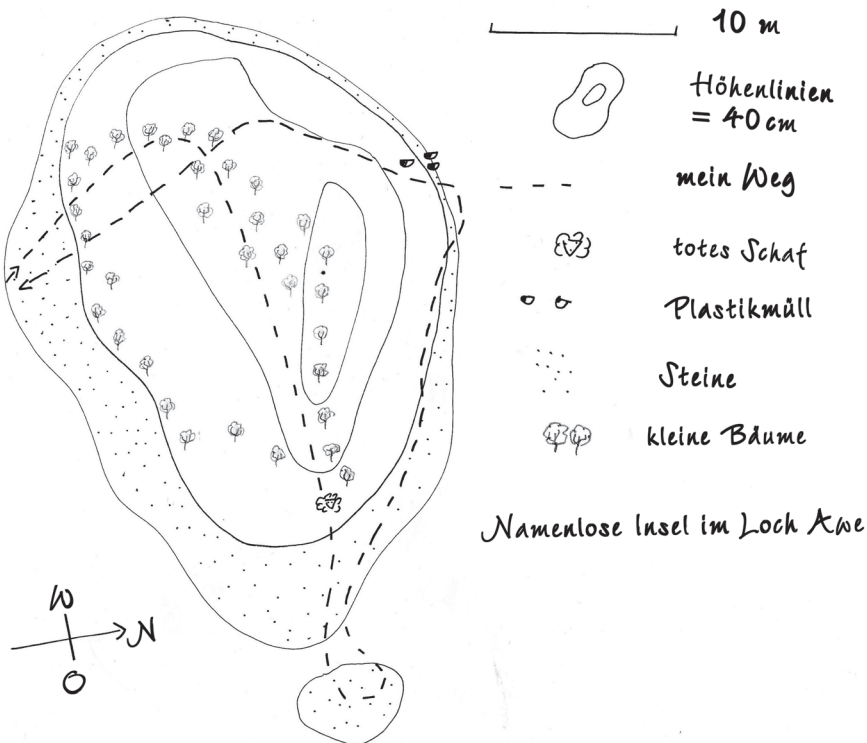 10 m
Höhenlinien
= 40 cm
mein Weg
totes Schaf
Plastikmüll
Steine
kleine Bäume
Namenlose Insel im Loch Awe
W
N
O